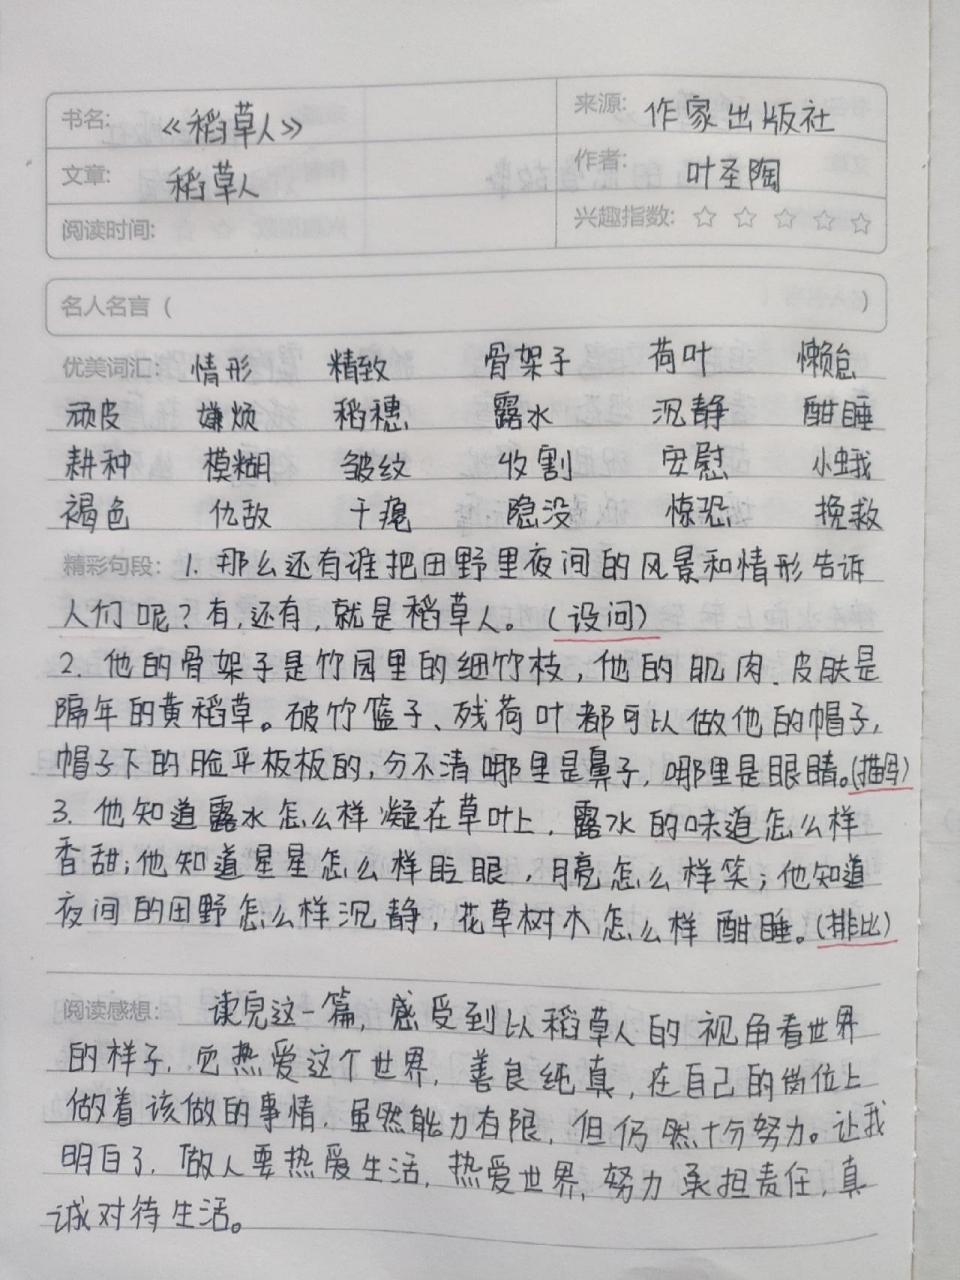 书名: 《稻草人》 来源: 作家出版社
文章: 稻草人 作者: 叶圣陶
阅读时间: 兴趣指数: ☆ ☆ ☆ ☆ ☆
名人名言 ( )
优美词汇: 情形 精致 骨架子 荷叶 懒怠
顽皮 嫌烦 稻穗 露水 沉静 酣睡
耕种 模糊 皱纹 收割 安慰 小蛾
褐色 仇敌 干瘪 隐没 惊恐 挽救
精彩句段: 1. 那么还有谁把田野里夜间的风景和情形告诉
人们呢？有,还有,就是稻草人。(设问)
2. 他的骨架子是竹园里的细竹枝,他的肌肉、皮肤是
隔年的黄稻草。破竹篮子、残荷叶都可以做他的帽子,
帽子下的脸平板板的,分不清哪里是鼻子,哪里是眼睛。(描写)
3. 他知道露水怎么样凝在草叶上,露水的味道怎么样
香甜;他知道星星怎么样眨眼,月亮怎么样笑;他知道
夜间的田野怎么样沉静,花草树木怎么样酣睡。(排比)
阅读感想: 读完这一篇,感受到以稻草人的视角看世界
的样子,它热爱这个世界,善良纯真,在自己的岗位上
做着该做的事情,虽然能力有限,但仍然十分努力。让我
明白了,做人要热爱生活,热爱世界,努力承担责任,真
诚对待生活。